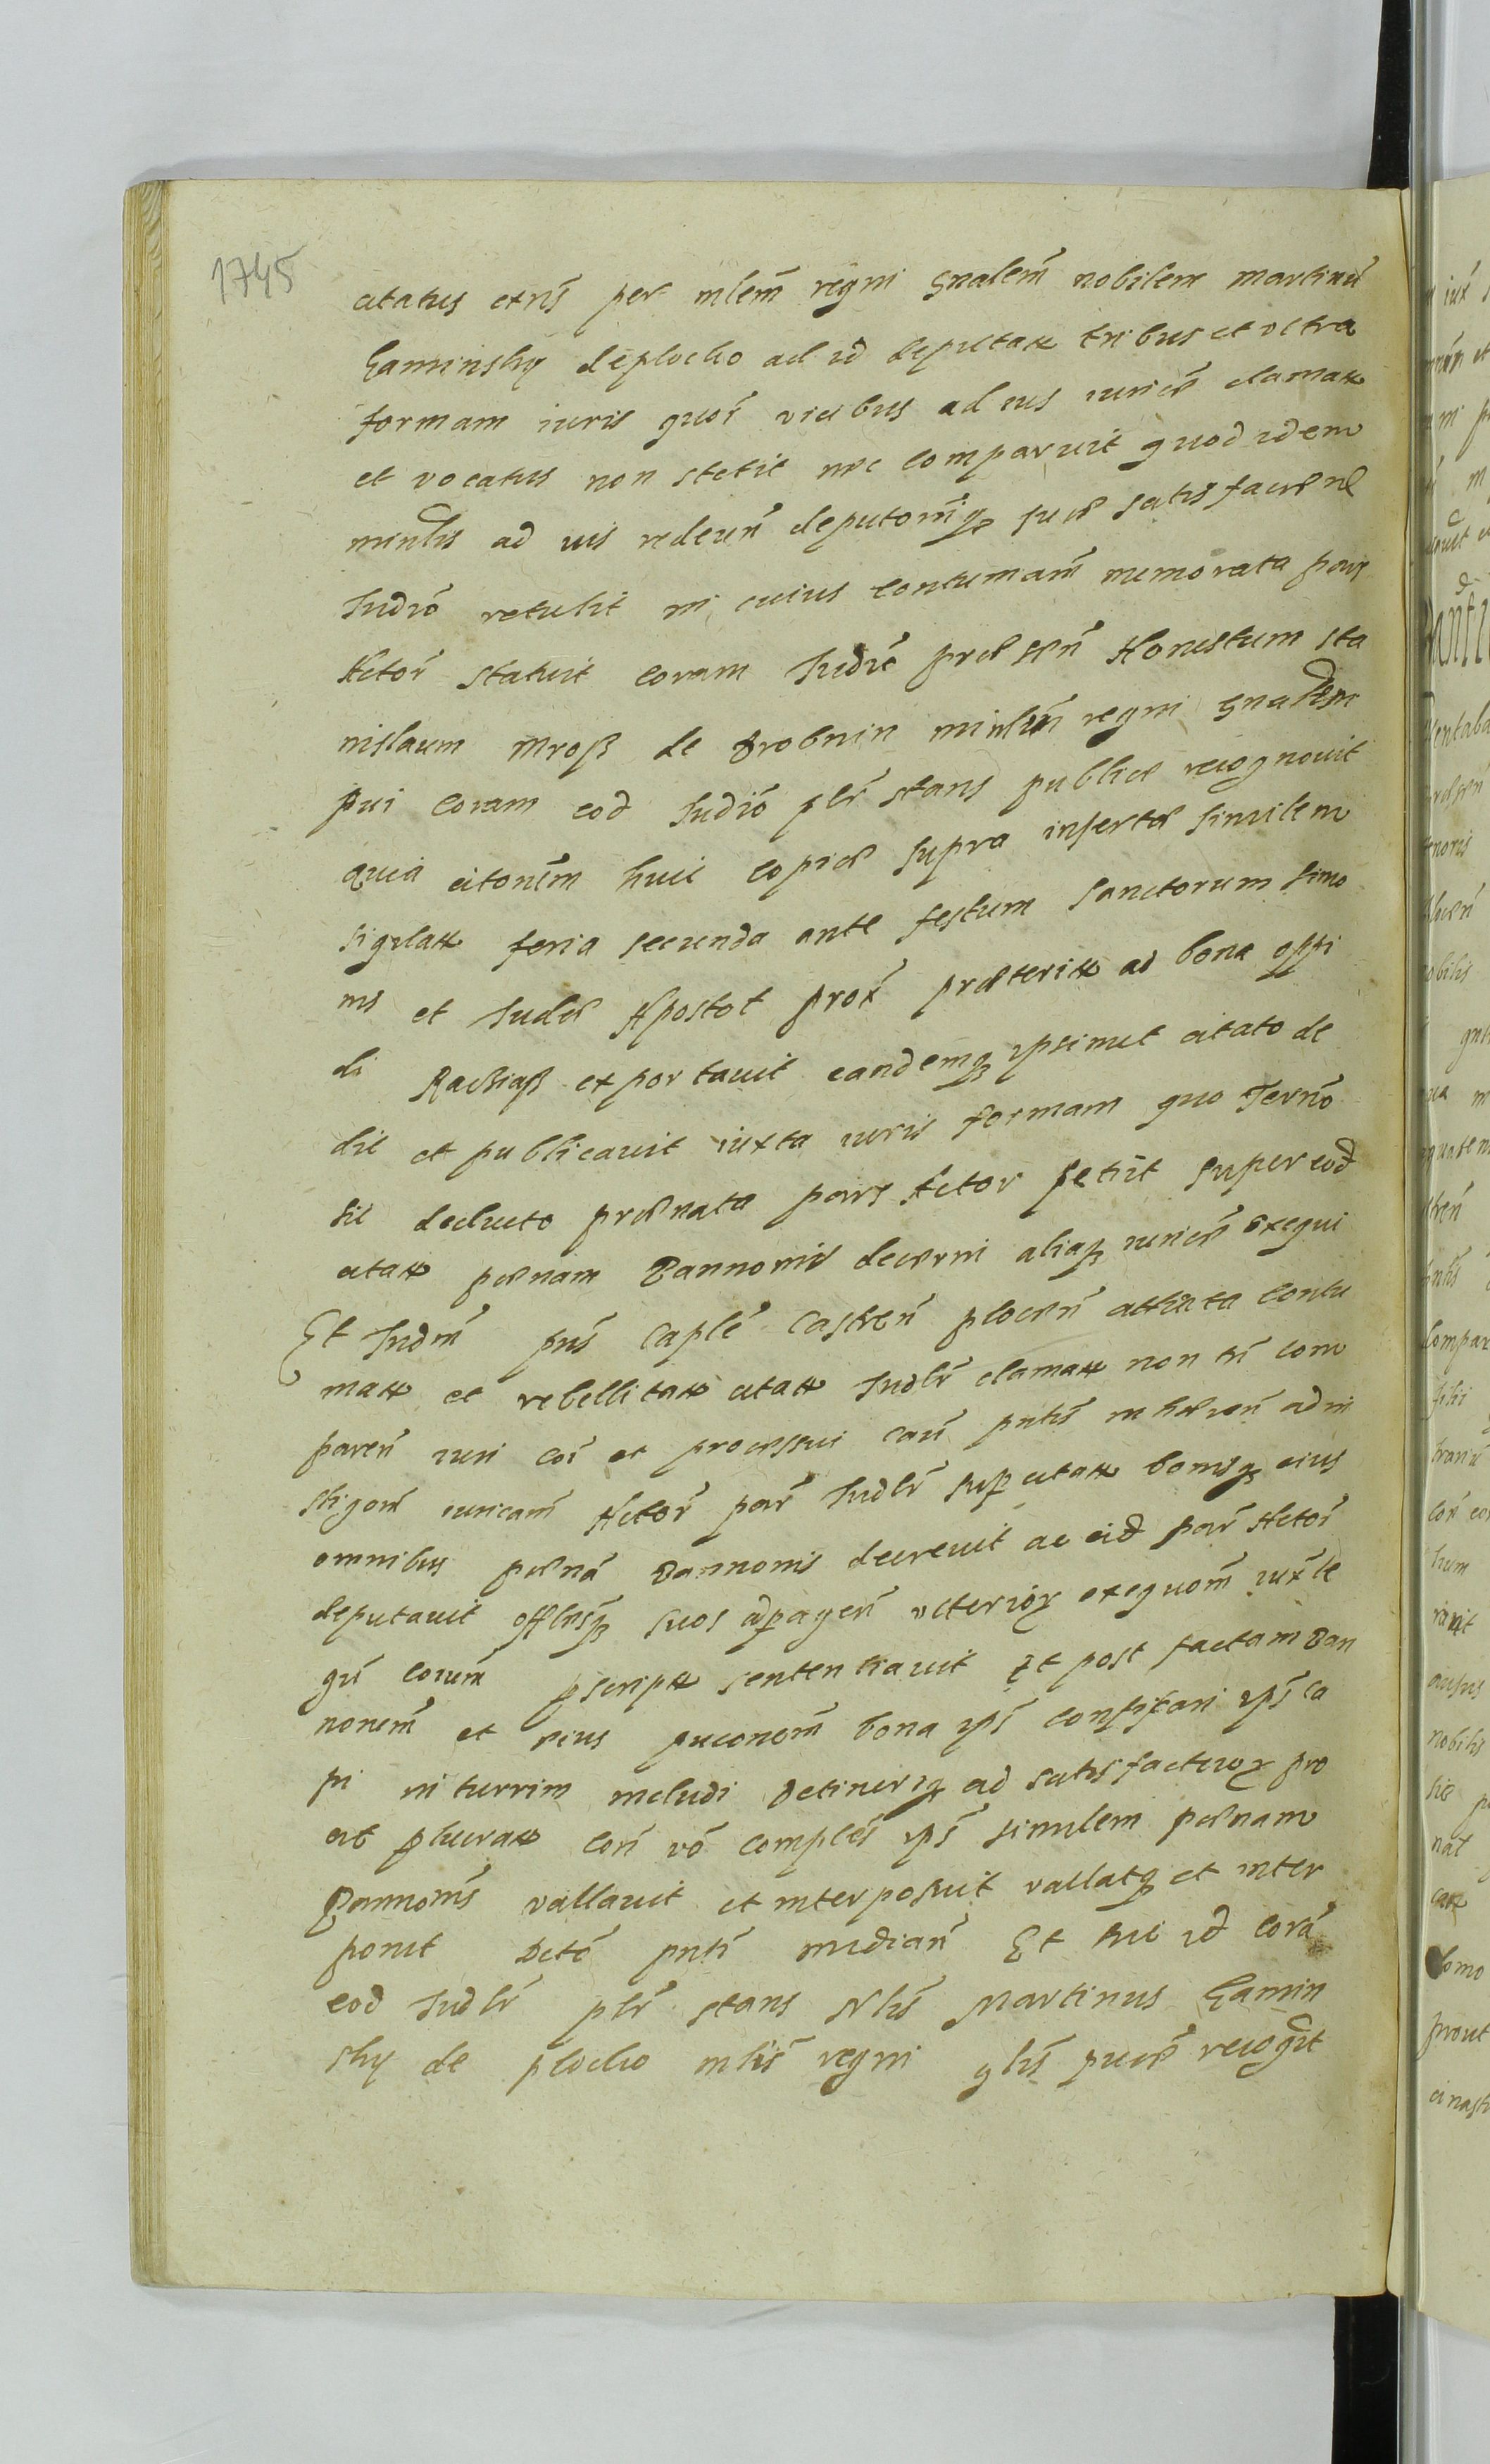 1745
citatus extns per mlem regni gnalem nobilem Martinu
Gaminsky de plocko ad id deputatt tribus et vltra
formam iuris quoi vicibus ad ius iurice clamatt
et vocatus non stetit nec comparuit quod idem
minlis ad ius redeun deputomiq suae satisfacene
Iudio retulit in cuius contumam memorata pars
Actor statuit coram Iudio praesen Honestum sta
nislaum Mroß de Drobnin minlem regni gnalem
qui coram eod Iudio plr stans publice recognouit
quia citonem huic copiae supra insertae similem
sigilatt feria secunda ante festum Sanctorum Simo
nis et Iudae Apostol prox praeteritt ad bona oppi
di Raciąß exportauit eandemq ipsimet citato de
dit et publicauit iuxta iuris formam quo Termo
sic deducto praenata pars Actor petiit super eod
citatt poenam Bannonis decerni aliaq iurice exequi
Et Iudm pns Caple Castren plocen attenta contu
matt et rebellitatt citatt Iudlr clamatt non tn com
paren iuri coi et processui cau pntis inhaeren ad in
stigom iuricam Actor par Iudlr sup citatt bonisq eius
omnibus poena Bannonis decreuit ac eid par Actor
deputauit offlesq suos ad peragen vlterior exequom iux le
gu corum pscriptt sententiauit Et post factam Ban
nonem et eius puconem bona ips confiscari ips ca
pi in turrim includi detineriq ad satisfactior pro
ut plucratt con vo comples ips similem poenam
Bannonis vallauit et interposuit vallatq et inter
ponit Dcto pnti median Et hic id cora
eod Iudlr plr stans Nlis Martinus Gamin
sky de plocko mlis regni glis puce recogit